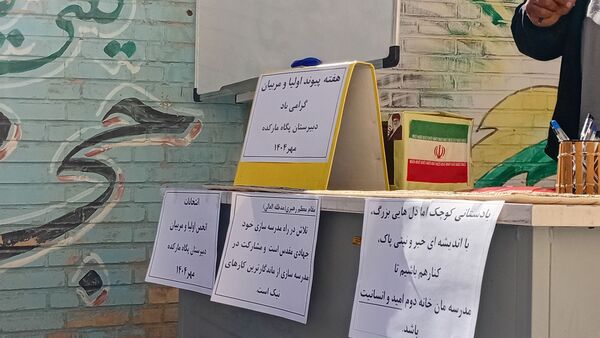 هفته پیوند اولیا و مربیان
گرامی باد
دبیرستان پگاه مارکده
مهر ۱۴۰۴
انتخابات
انجمن اولیا و مربیان
دبیرستان پگاه مارکده
مهر ۱۴۰۴
مقام معظم رهبری(مدظله العالی):
تلاش در راه مدرسه سازی خود
جهادی مقدس است و مشارکت در
مدرسه سازی از ماندگارترین کارهای
نیک است
با دستانی کوچک اما دل هایی بزرگ،
با اندیشه ای خیر و نیتی پاک،
کنار هم باشیم تا
مدرسه مان خانه دوم امید و انسانیت
باشد.